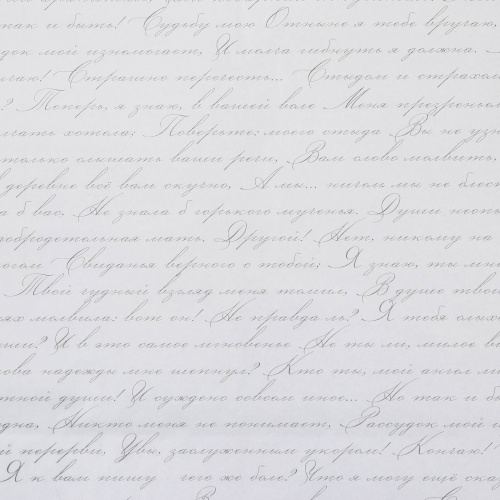 так и быть! Судьбу мою Отныне я тебе вручаю,
док мой изнемогает, И молча гибнуть я должна.
нчаю! Страшно перечесть... Стыдом и страхом
? Теперь, я знаю, в вашей воле Меня презреньем
лчать хотела; Поверьте: моего стыда Вы не узн
только слышать ваши речи, Вам слово молвить,
в деревне всё вам скучно, А мы... ничем мы не блес
а б вас, Не знала б горького мученья. Души неопы
добродетельная мать. Другой! Нет, никому на
огом Свиданья верного с тобой; Я знаю, ты мне
Твой чудный взгляд меня томил, В душе твой
ях молвила: вот он! Не правда ль? Я тебя слых
ши? И в это самое мгновенье Не ты ли, милое ви
ова надежды мне шепнул? Кто ты, мой ангел ли
тной души! И суждено совсем иное... Но так и бы
дна, Никто меня не понимает, Рассудок мой и
й перерви, Увы, заслуженным укором! Кончаю!
Я к вам пишу чего же боле? Что я могу ещё ска